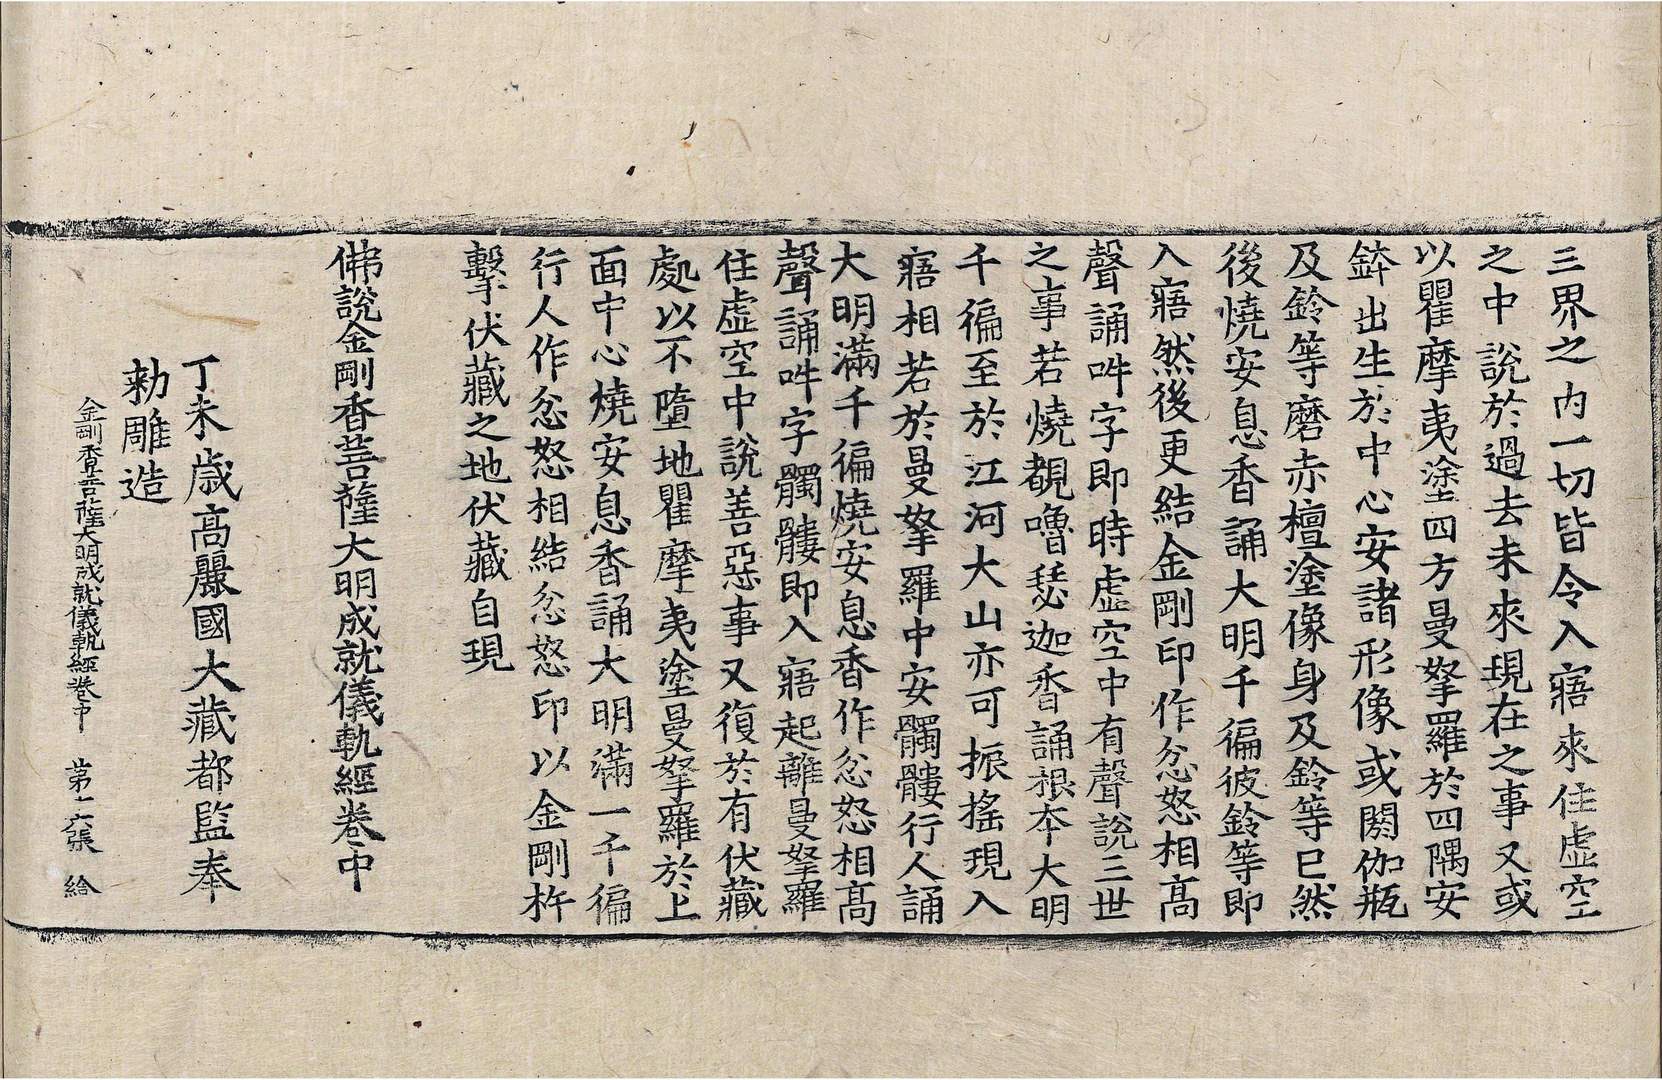 三界之內一切皆令入寤來住虛空
之中說於過去未來現在之事又或
以瞿摩夷塗四方曼拏羅於四隅安
鉢出生於中心安諸形像或閼伽瓶
及鈴等磨赤檀塗像身及鈴等已然
後燒安息香誦大明千徧彼鈴等即
入寤然後更結金剛印作忿怒相高
聲誦吽字即時虛空中有聲說三世
之事若燒覩嚕瑟迦香誦根本大明
千徧至於江河大山亦可振搖現入
寤相若於曼拏羅中安髑髏行人誦
大明滿千徧燒安息香作忿怒相高
聲誦吽字髑髏即入寤起離曼拏羅
住虛空中說善惡事又復於有伏藏
處以不墮地瞿摩夷塗曼拏羅於上
面中心燒安息香誦大明滿一千徧
行人作忿怒相結忿怒印以金剛杵
擊伏藏之地伏藏自現
佛說金剛香菩薩大明成就儀軌經卷中
丁未歲高麗國大藏都監奉
勑雕造
金剛香菩薩大明成就儀軌經卷中 第十六張 給